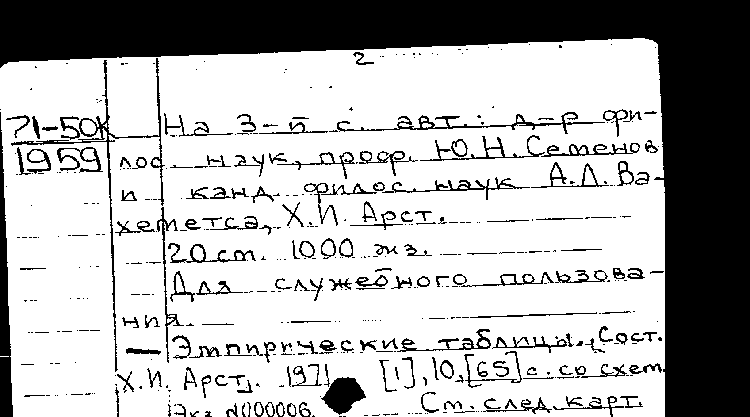 2
71-50К На 3-й с. авт.: д-р фи-
1959 лос. наук, проф. Ю.Н. Семенов
и канд. филос. наук А.Л. Ва-
хеметса, Х.И. Арст.
20 см. 1000 экз.
Для служебного пользова-
ния.
— Эмпирические таблицы., Сост.
Х.И. Арст. 1971 [1], 10, [65] с. со схем.
Экз. N000006. См. след. карт.